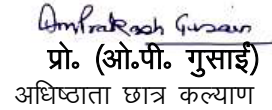 Om Prakash Gusain
प्रो. (ओ.पी. गुसाईं)
अधिष्ठाता छात्र कल्याण